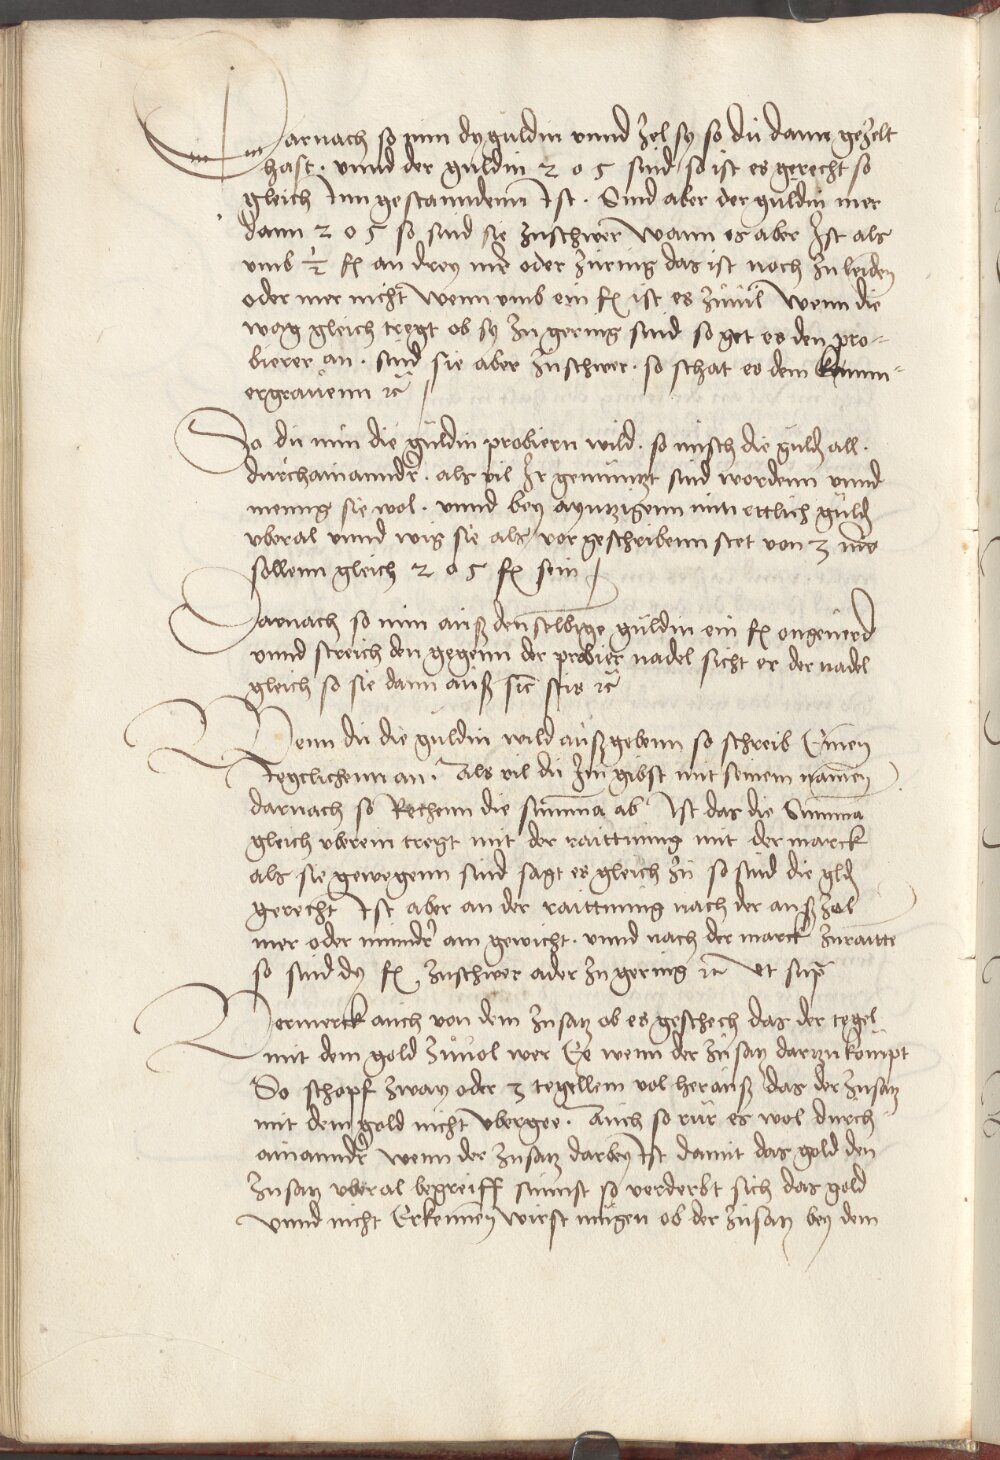 Darnach so nim dy guldin vnnd zel sy so du dann gezelt
hast . vnnd der guldin 205 sind so ist es gerecht so
gleich Inn gestanndenn Ist . Sind aber der guldin mer
dann 205 so sind sie zuschwer Wann es aber Ist als
vmb ½ fl an drey mr oder zuring das ist noch zu leiden
oder mer nicht Wenn vmb ein fl ist es zuuil Wenn die
wag gleich tregt ob sy zu gering sind so get es den pro-
bierer an . sind sie aber zuschwer . so schat es dem kamm-
ergrauenn rc
So du nun die guldin probiern wild . so misch die guld all .
durchainannder . als vil Ir gemunzt sind wordenn vnnd
menng sie wol . vnnd bey aynzigenn nim ettlich guld
vberal vnnd wig sie als vor geschribenn stet von 3 mr
sollenn gleich 205 fl sein
Darnach so nim auß denselbigen guldin ein fl ongeuerd
vnnd streich den gegenn der probier nadel sicht er der nadel
gleich so sie dann auß rc
Wenn du die guldin wild außgebenn so schreib Einen
Iegclichenn an . Als vil du Im gibst mit seinem namen
darnach so Rechenn die summa ab Ist das die Summa
gleich vberein tregt mit der raittung mit der marck
als sie gewegenn sind sagt es gleich zu so sind die gld
gerecht Ist aber an der raittung nach der außzal
mer oder minndr am gewicht . vnnd nach der marck zuraitte
so sind dy fl zuschwer oder zu gering rc Vt sup
Vermerck auch von dem zusatz ob es geschech das der tegel
mit dem gold zuuol wer Ee wenn der zusatz darzu kompt
So schopf zway oder 3 tegellein vol herauß das der zusatz
mit dem gold nicht vbergee . Auch so rur es wol durch
ainannder wenn der zusatz darbey Ist damit das gold den
zusatz vberal begreiff sunnst so verderbt sich das gold
vnnd nicht Erkennen wirst mugen ob der zusatz bey dem